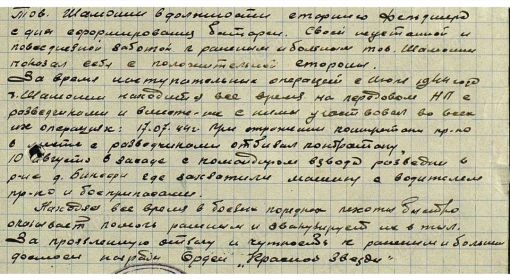 Тов. Шамонин в должности старшего фельдшера
с дня сформирования батареи. Своей неустанной и
повседневной заботой к раненым и больным тов. Шамонин
показал себя с положительной стороны.
За время наступательных операций с июня 1944 года
т. Шамонин находится все время на передовом НП с
разведчиками и вместе с ними участвовал во всех
их операциях: 17.07.44г. При отражении контратаки пр-ка
вместе с разведчиками отбивал контратаку,
10 августа в засаде с командиром взвода разведки в
р-не д. где захватили машину с водителем
пр-ка и боеприпасами.
Находясь все время в боевых порядках пехоты быстро
оказывает помощь раненым и эвакуирует их в тыл.
За проявленную отвагу и чуткость к раненым и больным
достоин награды Орден „Красной Звезды"